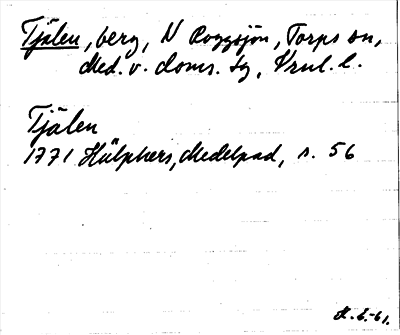 Tjålen, berg, N Roggsjön, Torps sn,
Med. v. doms. sg, Vnul. l.
Tjålen
1771 Hülphers, Medelpad, s. 56
H. G. -61.